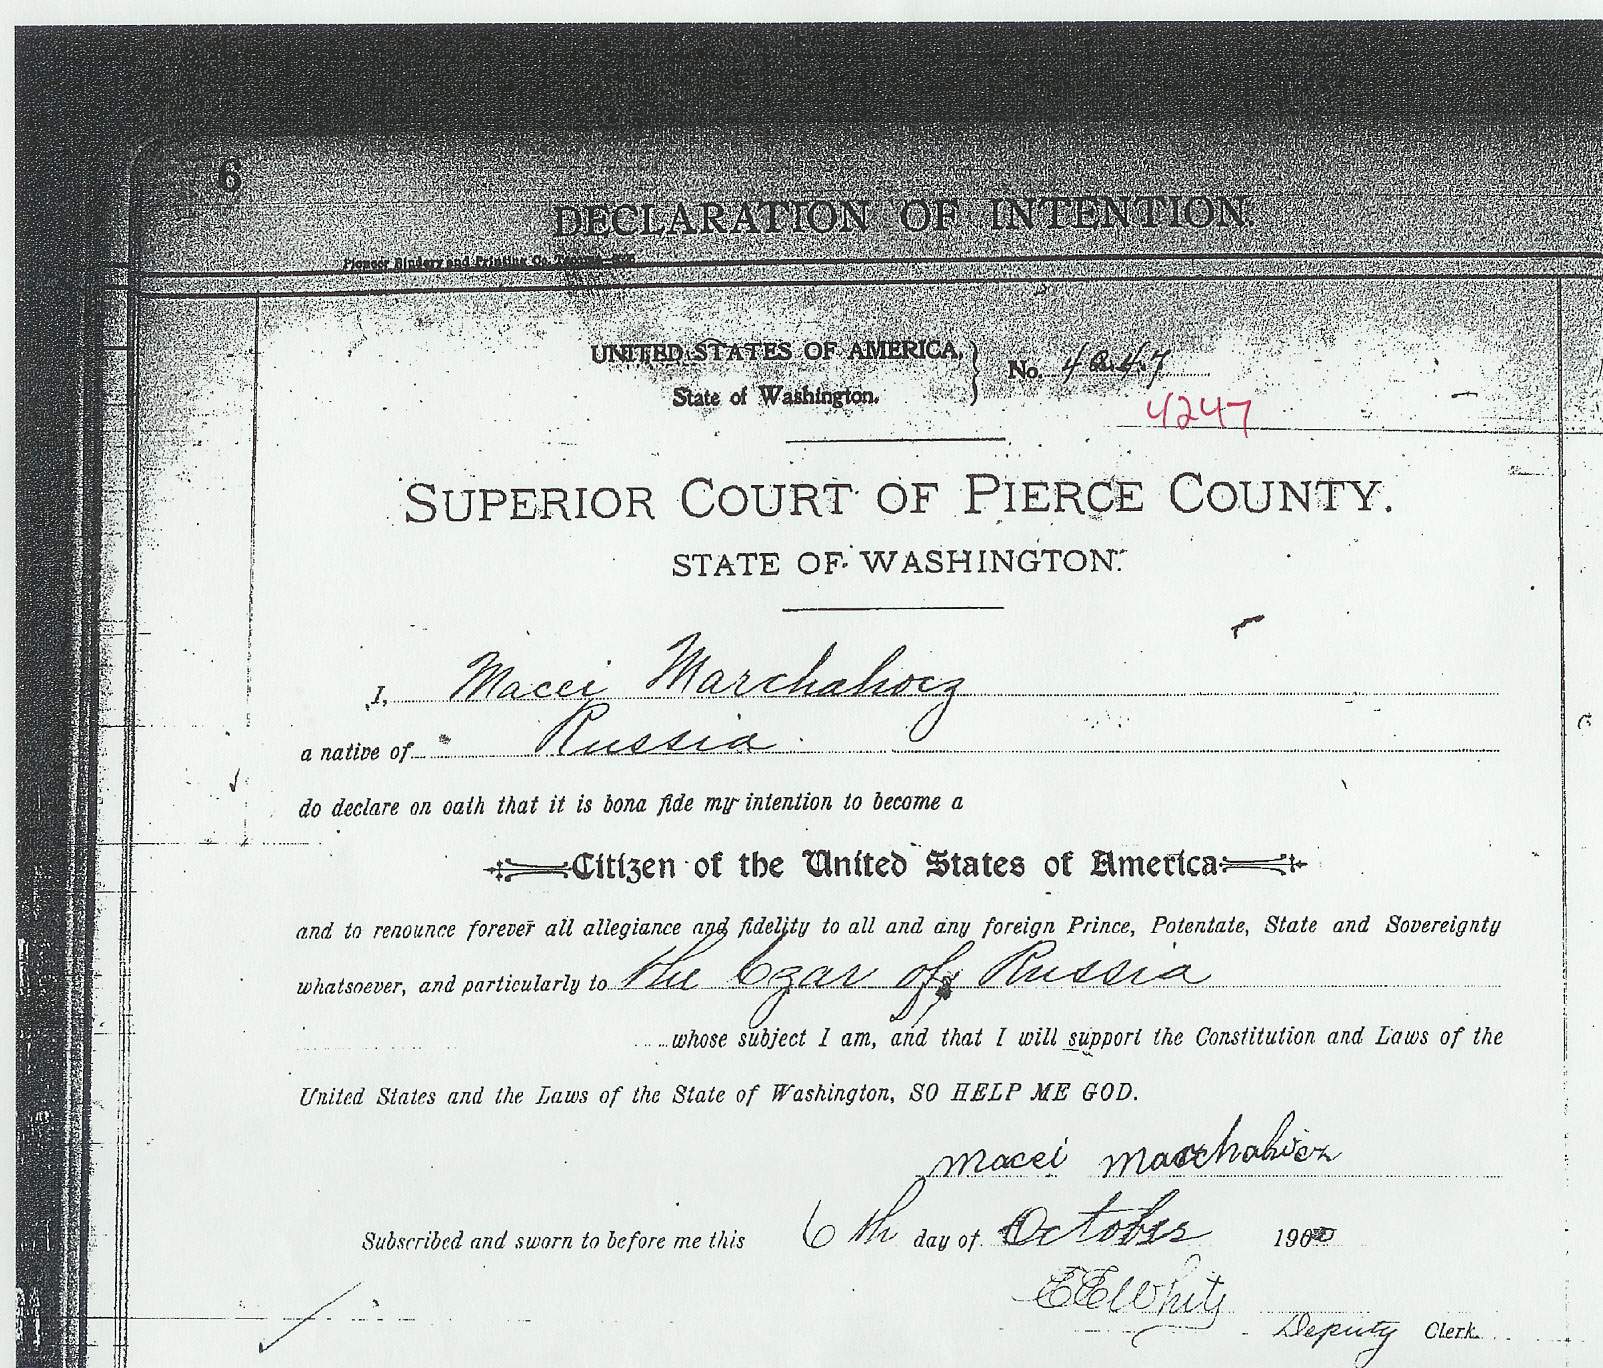 6
DECLARATION OF INTENTION.
Pioneer Bindery and Printing Co.
UNITED STATES OF AMERICA,
State of Washington.
No. 4247
4247
SUPERIOR COURT OF PIERCE COUNTY.
STATE OF WASHINGTON.
I, Macei Marchahocz
a native of Russia
do declare on oath that it is bona fide my intention to become a
Citizen of the United States of America
and to renounce forever all allegiance and fidelity to all and any foreign Prince, Potentate, State and Sovereignty
whatsoever, and particularly to the Czar of Russia
whose subject I am, and that I will support the Constitution and Laws of the
United States and the Laws of the State of Washington, SO HELP ME GOD.
macei
Subscribed and sworn to before me this 6th day of October 190
EE White
Deputy Clerk.